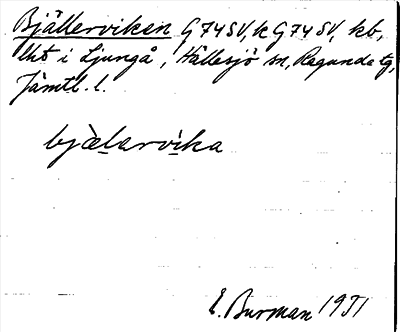 Bjällerviken G74SV, k G74SV, kb,
lht i Ljungå, Hällesjö sn, Ragunda tg,
Jämtl. l.
bjæ̀lervìka
E. Burman 1951